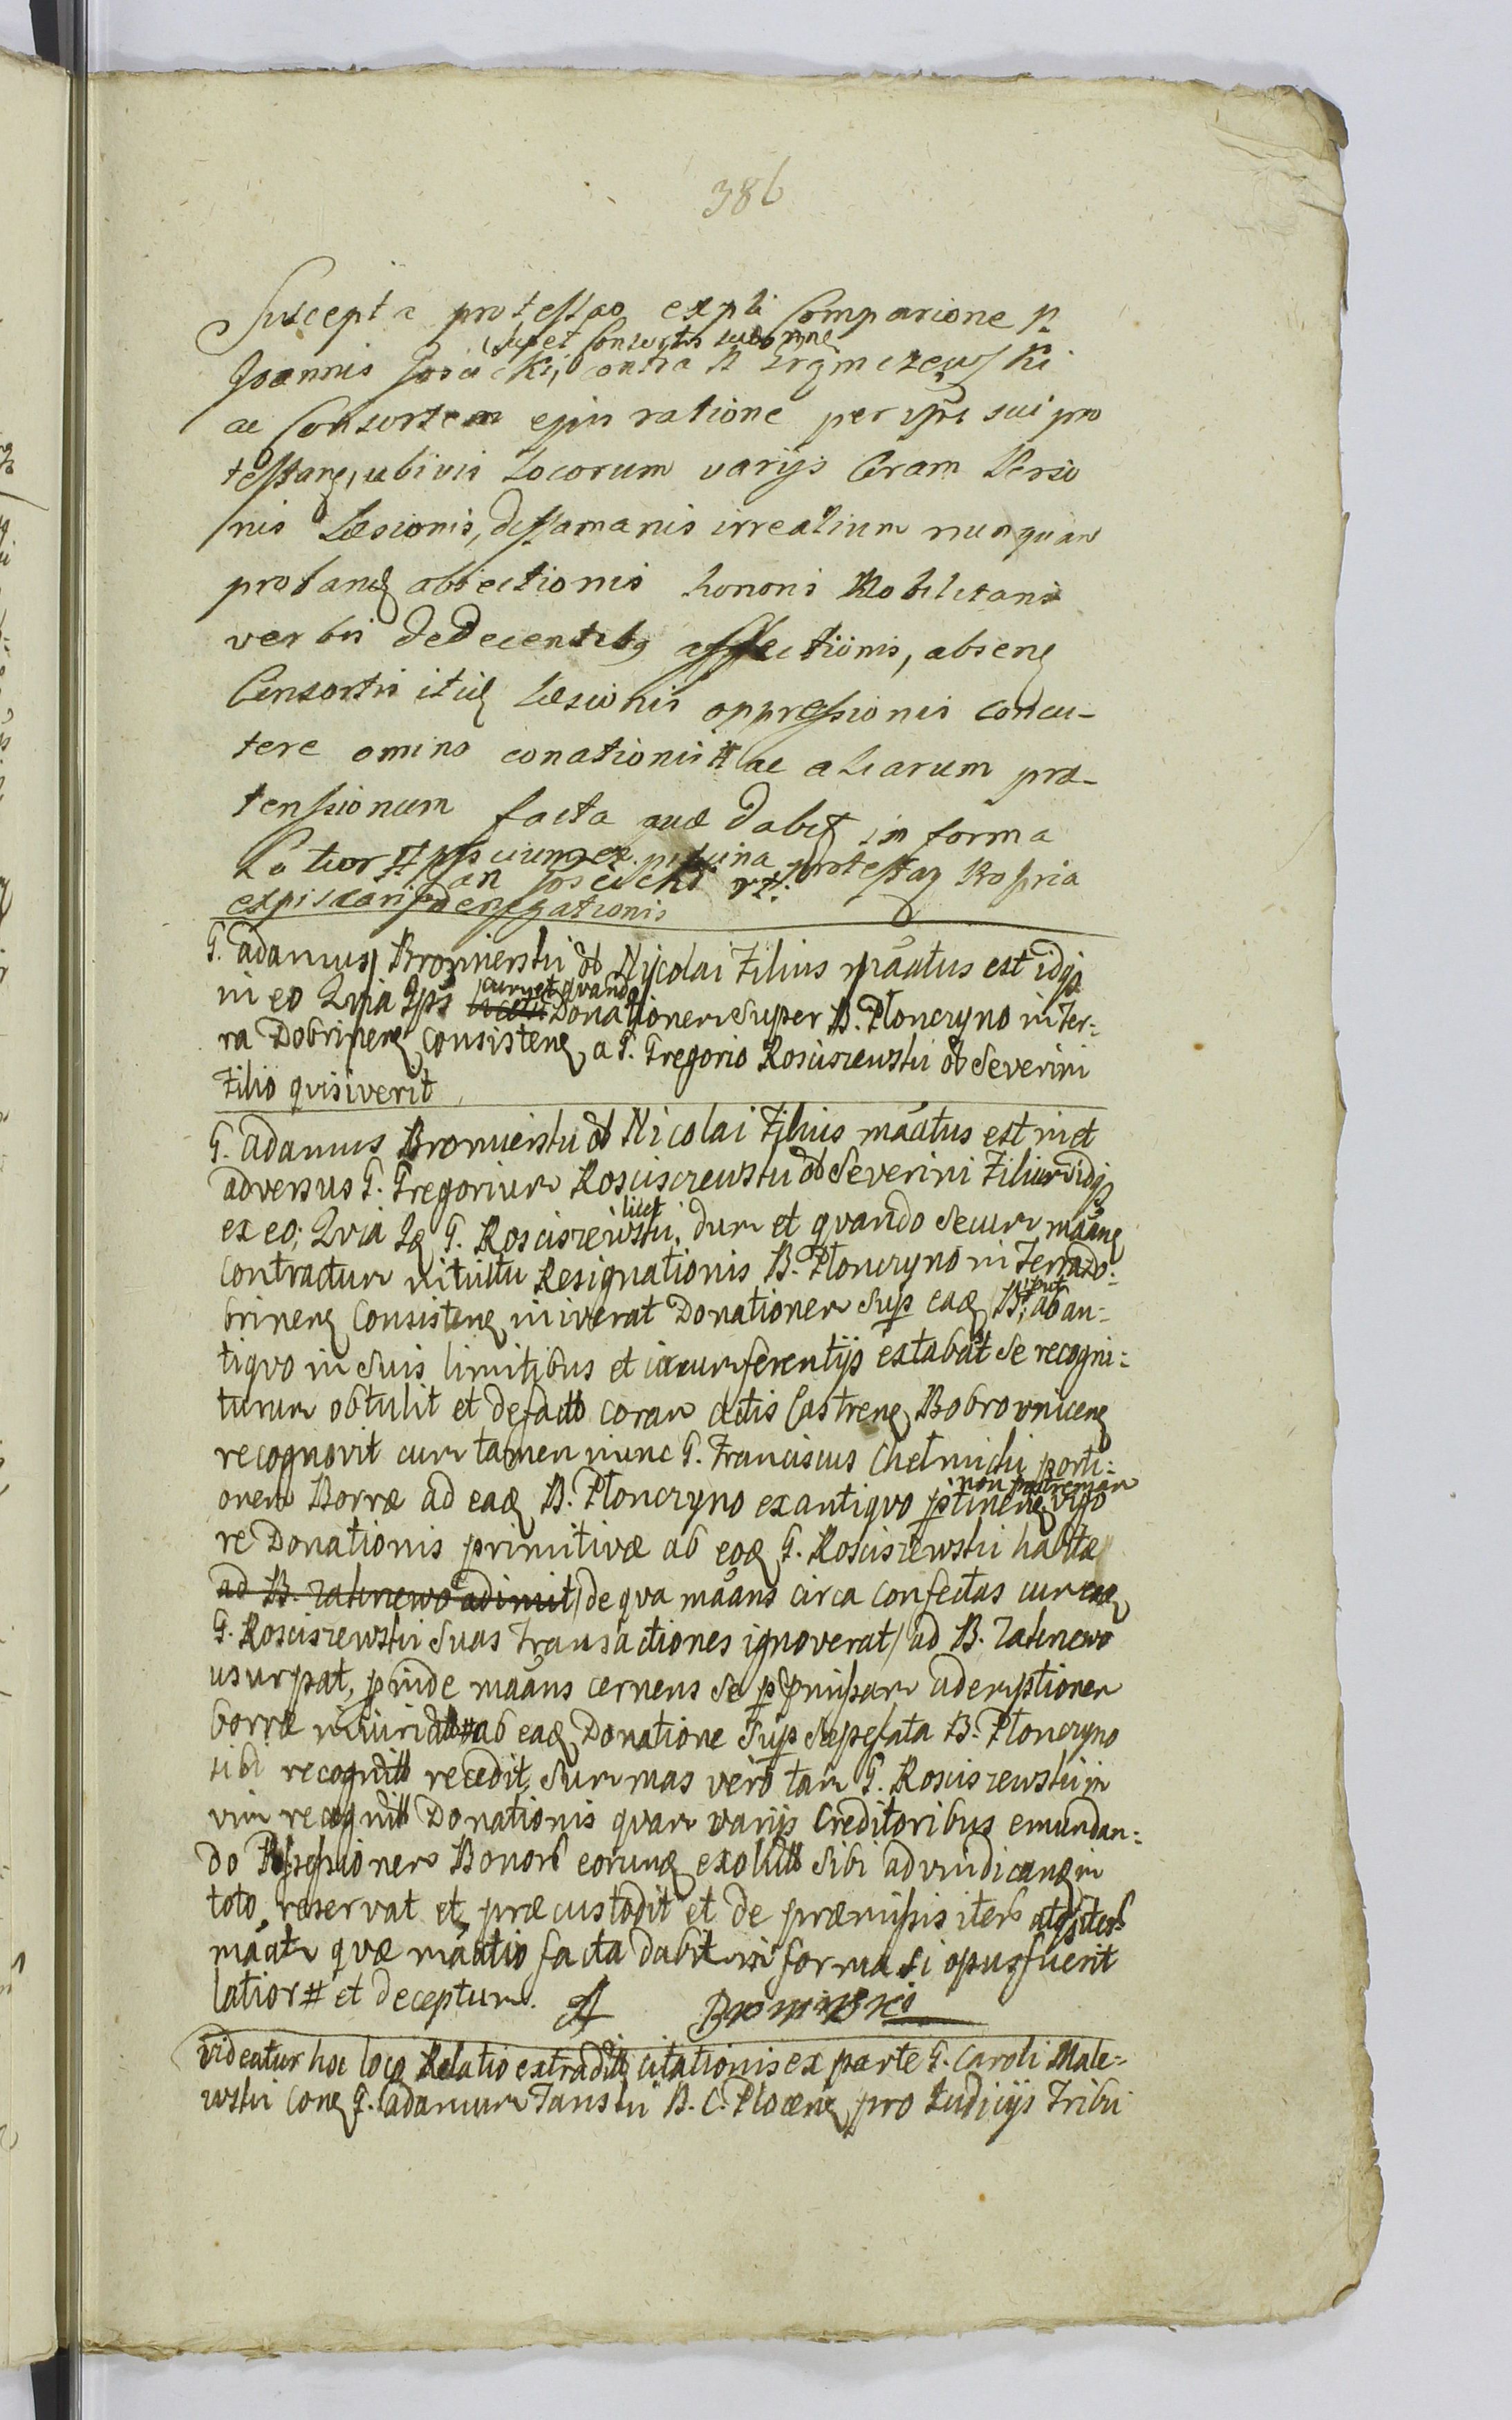 386
Suscepta protestao expti Comparione p
suo et Consortis suae nne
Joannis Josicki, contra
ac Consortem ejus ratione per ipm sui pro
testang, ubivis Locorum varijs Coram Perso
nis Læsionis, deffamanis irrealium nunquam
proband obiectionis honoris Nobilitanis
verbis dedecentibg affectionis, abseng
Consortis itid Læsionis oppressionis concu-
tere omino conationis # ac aliarum præ-
tensionum facta quæ dabit in forma
Latior # protestaz
expiscari denegationis
G. Adamus Bromierski ol Nicolai Filius mãatus est idqz
cum et quando
in eo Qvia Ips Donationem super B. Płonczyno in Ter:
ra Dobrineng Consisteng a G. Gregorio Rosciszewski ol Severini
Filio qvisiverit
G. Adamus Bromierski ol Nicolai Filius mãatus est in et
adversus G. Gregorium Rosciszewski ol Severini Filium idqz
licet
ex eo; Qvia Id G. Rosciszewski, dum et qvando Secum mãang
Contractum intuitu Resignationis B. Płonczyno in Terra Do:
brineng Consisteng iniverat Donationem Sup ead B. ut ab an:
tiqvo in Suis limitibus et circumferentijs extabat Se recogni:
turum obtulit et defacto coram Actis Castreng Bobrovniceng
recognovit cum tamen nunc G. Franciscus Chełmicki porti:
non postremam
onem Borræ ad ead B. Płonczyno ex antiqvo ptineng vigo
re Donationis primitivæ ab eod G. Rosciszewski habitæ
ad B. Zalinewo adimit /de qva mãans circa confectas cum eod
G. Rosciszewski Suas Transactiones ignoverat/ ad B. Zalinewo
usurpat, pinde mãans cernens Se p præmissam ademptionem
borræ # ab ead Donatione Sup Sæpefata B. Płonczyno
sibi recognita recedit, Summas vero tam G. Rosciszewski in
vim recognit Donationis qvam varijs Creditoribus emundan:
do Possessionem Bonor eorund exolut Sibi advindicand in
toto reservat et præcustodit et de præmissis iter atqz iter
mãatr qvæ mãatio facta dabit in forma si opus fuerit
latior # et deceptum. A Bromirski
Videatur hoc loco Relatio extradit citationis ex parte G. Caroli Male:
wski Cong G. Adamum Janski B. C. Ploceng pro Judicijs Tribu